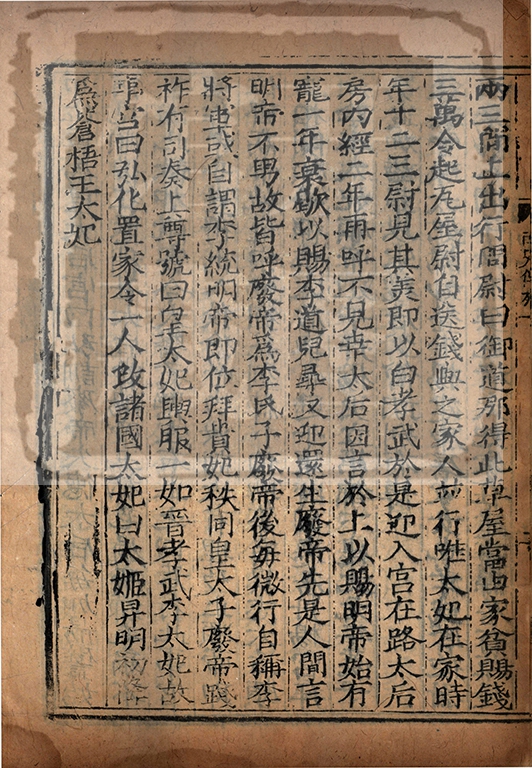 兩三間上出行問尉曰御道那得此草屋當由家貧賜錢
三萬令起瓦屋尉自送錢與之家人並行唯太妃在家時
年十二三尉見其美即以白孝武於是迎入宫在路太后
房内經二年再呼不見幸太后因言於上以賜明帝始有
寵一年衰歇以賜李道兒尋又迎還生廢帝先是人間言
明帝不男故皆呼廢帝爲李氏子廢帝後每微行自稱李
將軍或自謂李統明帝即位拜貴妃秩同皇太子廢帝踐
祚有司奏上尊號曰皇太妃輿服一如晉孝武李太妃故
事宫曰弘化置家令一人改諸國太妃曰太姬昇明初降
爲蒼梧王太妃